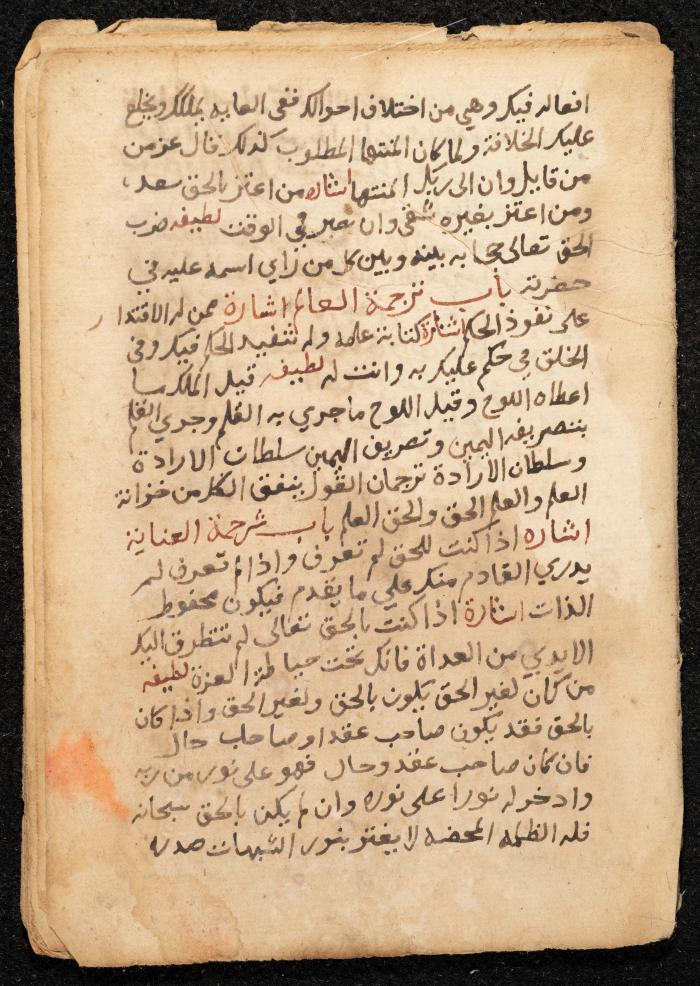 افعاله فيك وهي من اختلاف احوالك ففى الغايه يملك ويخلع
عليك الخلافة ولما كان المنتها المطلوب كذلك قال عز من
من قايل وان الى ربك المنتها اشاره من اعتز بالحق سعد
ومن اعتز بغيره شقى وان نصر في الوقت لطيفه ضرب
الحق تعالى حجابه بينه وبين كل من راي اسمه عليه في
حضرته باب ترجمة العالم اشارة ممن له الاقتدار
على نفوذ الحكم اشارة كتابة علمه وله تنفيد الحكم فيك وفى
الخلق في حكم عليك به وانت له لطيفه قيد الملك ما
اعطاه اللوح وقيد اللوح ما جري به القلم وجري القلم
بتصريف اليمين وتصريف اليمين سلطان الارادة
وسلطان الارادة ترجمان القول ينفق الكل من خزانة
العلم والعلم الحق والحق العلم باب شرجمة العناية
اشاره اذا كنت للحق لم تعرف واذا لم تعرف لم
يدري القادم منك على ما يقدم فيكون محفوط
الذات اشارة اذا كنت بالحق تعالى لم تتطرق اليك
الايدي من العداة فانك تحت حياطة العزة لطيفه
من كان لغير الحق يكون بالحق ولغير الحق واذا كان
بالحق فقد يكون صاحب عقد او صاحب حال
فان كان صاحب عقد وحال فهو على نور من ربه
وادخر له نورا على نوره وان لم يكن بالحق سبحانه
فله الظلمه المحضه لا يغتر بنور الشبهات صدره